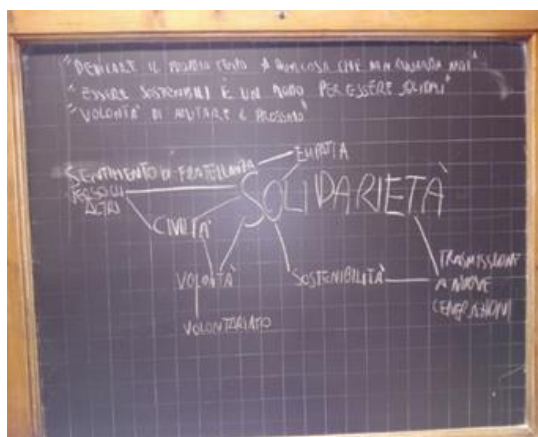 "DEDICARE IL PROPRIO TEMPO A QUALCOSA CHE NON RIGUARDA NOI"
"ESSERE SOSTENIBILI È UN MODO PER ESSERE SOLIDALI"
"VOLONTÀ DI AIUTARE IL PROSSIMO"
EMPATIA
SENTIMENTO DI FRATELLANZA
ALTRI
SOLIDARIETÀ
CIVILTÀ
VOLONTÀ
SOSTENIBILITÀ
TRASMISSIONE
A NUOVE
GENERAZIONI
VOLONTARIATO